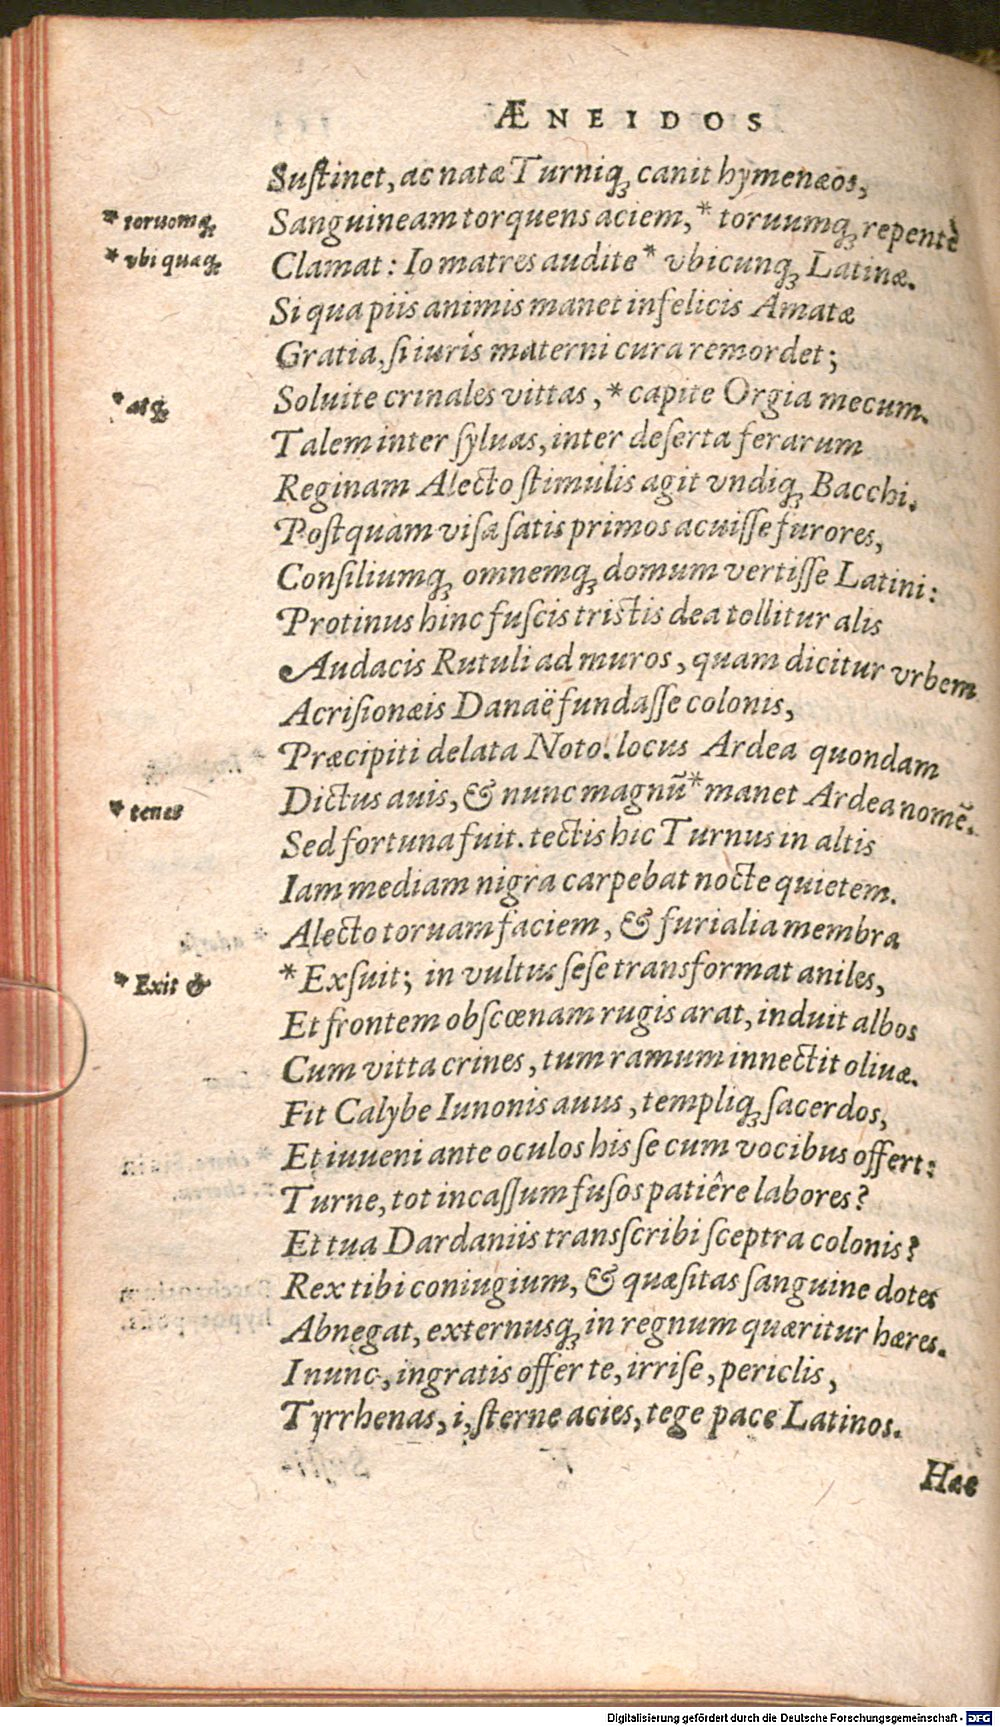 ÆNEIDOS
Suſtinet, ac natæ Turniq́; canit hymenæos,
* toruomq́; Sanguineam torquens aciem, * toruumq́; repentè
* vbi quæq́; Clamat: Io matres audite * vbicunq́; Latinæ.
Si qua piis animis manet infelicis Amatæ
Gratia, ſi iuris materni cura remordet;
* atq́; Soluite crinales vittas, * capite Orgia mecum.
Talem inter ſyluas, inter deſerta ferarum
Reginam Alecto ſtimulis agit vndiq́; Bacchi.
Poſtquam viſa ſatis primos acuiſſe furores,
Conſiliumq́; omnemq́; domum vertiſſe Latini:
Protinus hinc fuſcis triſtis dea tollitur alis
Audacis Rutuli ad muros, quam dicitur vrbem
Acriſionæis Danaë fundaſſe colonis,
Præcipiti delata Noto. locus Ardea quondam
* tenet Dictus auis, & nunc magnũ * manet Ardea nomẽ.
Sed fortuna fuit. tectis hic Turnus in altis
Iam mediam nigra carpebat nocte quietem.
Alecto toruam faciem, & furialia membra
* Exit & * Exſuit; in vultus ſeſe transformat aniles,
Et frontem obſcœnam rugis arat, induit albos
Cum vitta crines, tum ramum innectit oliuæ.
Fit Calybe Iunonis auus, templiq́; ſacerdos,
Et iuueni ante oculos his ſe cum vocibus offert:
Turne, tot incaſſum fuſos patiêre labores?
Et tua Dardaniis tranſſcribi ſceptra colonis?
Rex tibi coniugium, & quæſitas ſanguine dotes
Abnegat, externusq́; in regnum quæritur hæres.
I nunc, ingratis offer te, irriſe, periclis,
Tyrrhenas, i, ſterne acies, tege pace Latinos.
Hæc
Digitalisierung gefördert durch die Deutsche Forschungsgemeinschaft - DFG